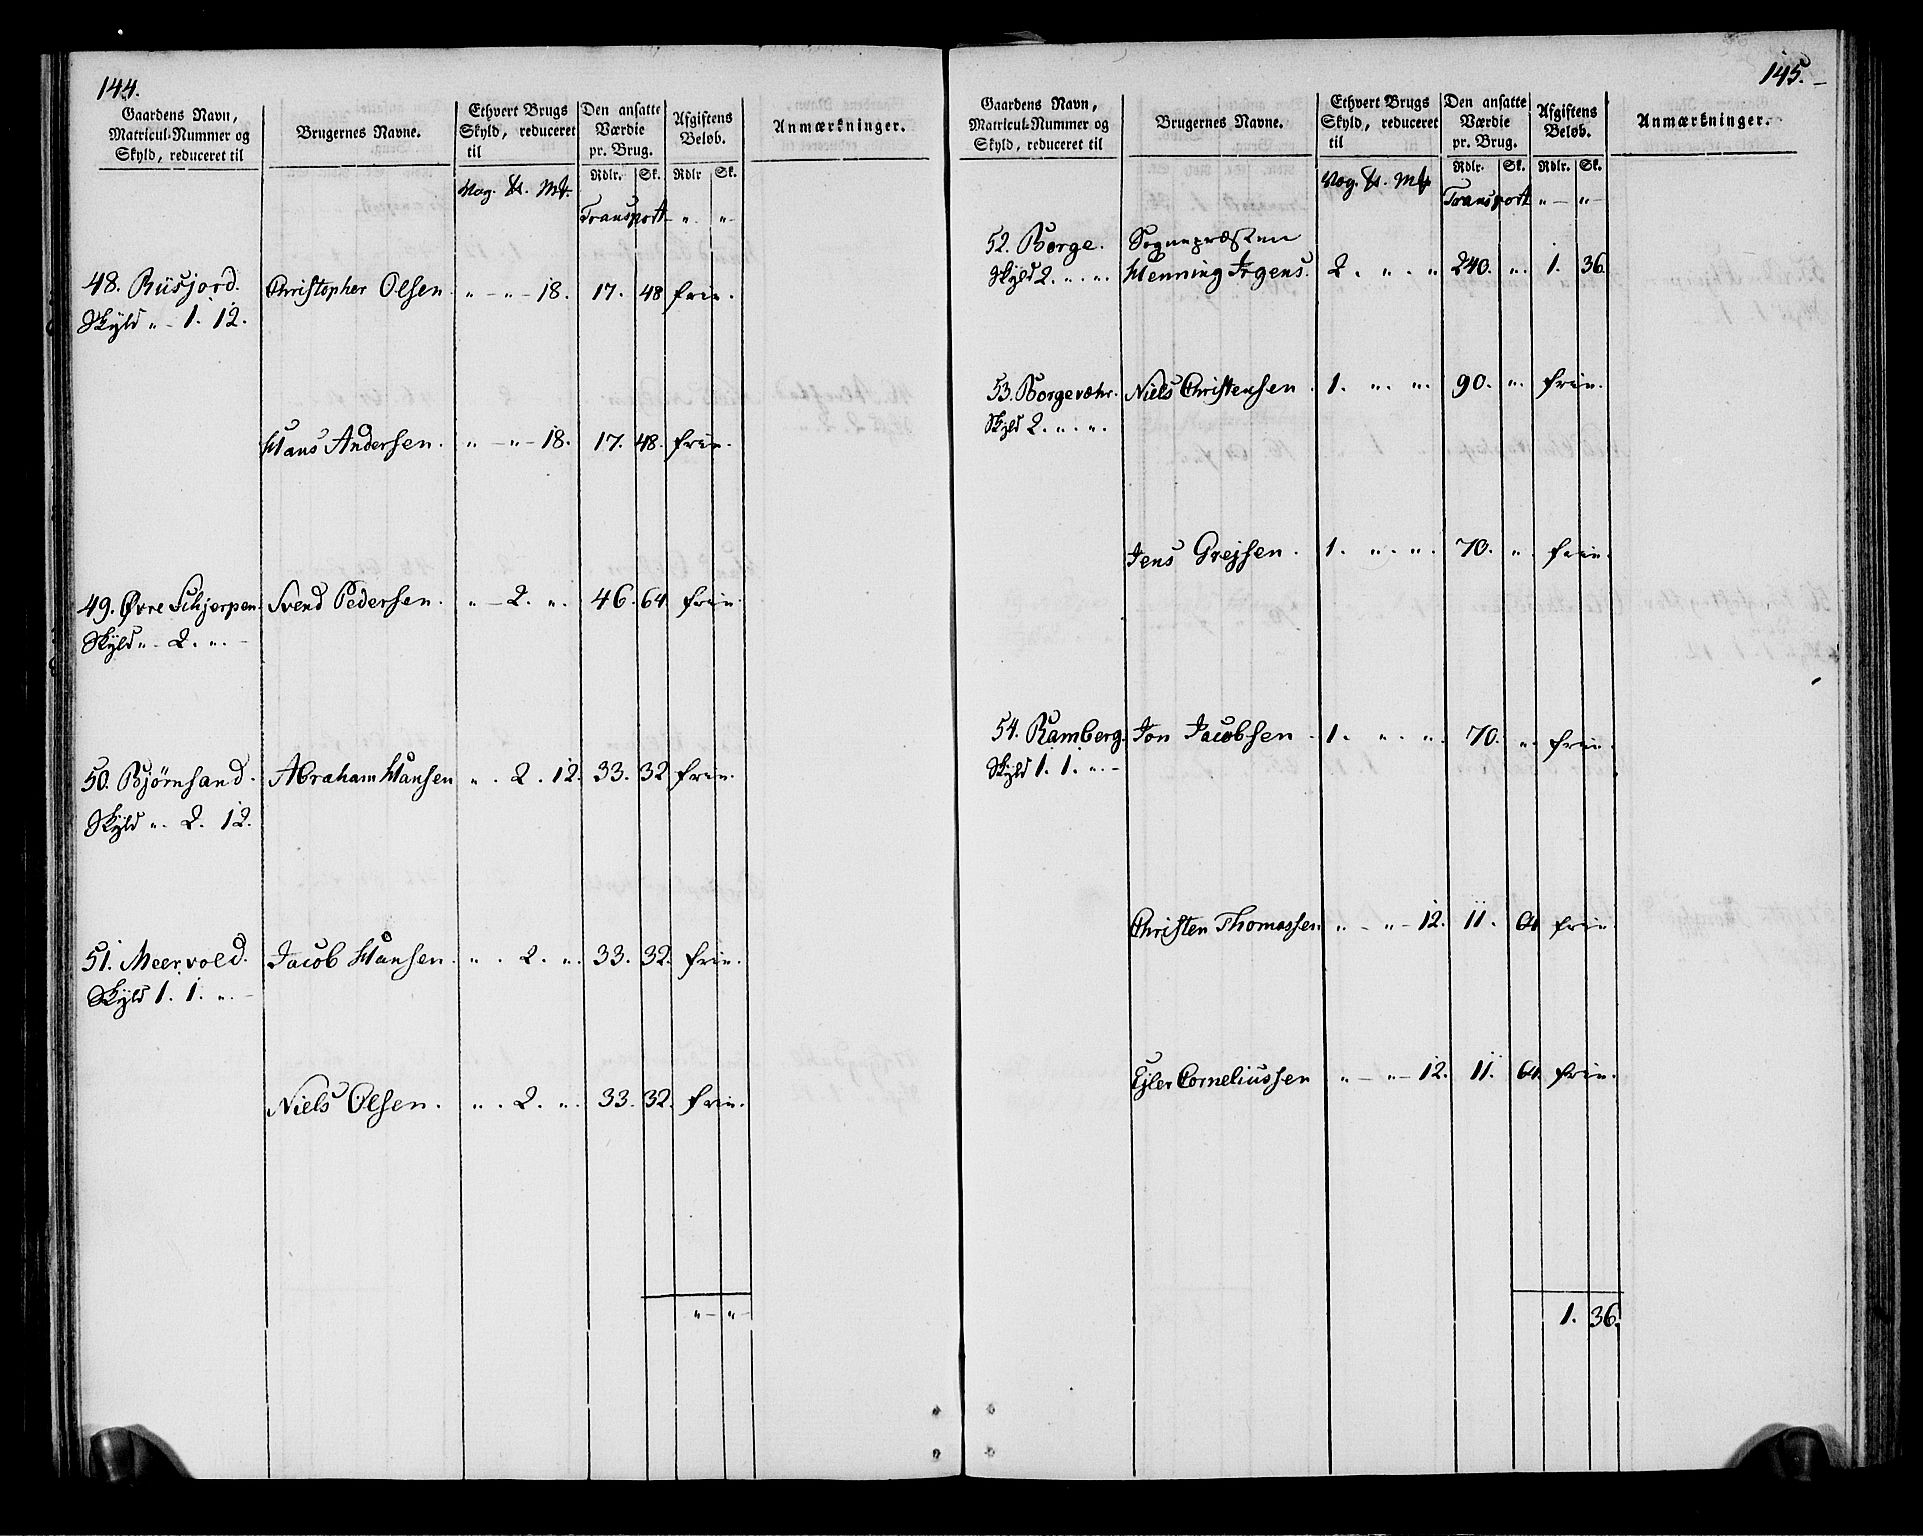 144.
Gaardens Navn, Matricul-Nummer og Skyld, reduceret til | Brugernes Navne. | Ethvert Brugs Skyld, reduceret til | Den ansatte Værdie pr. Brug. | Afgiftens Beløb. | Anmærkninger.
Rdlr. Sk. Rdlr Sk.
Vog. ℔. Mk.
Transport „ „
48. Rüsjord. Christopher Olsen „ - „ - 18. 17. 48 frie.
Skyld „ - 1. 12.
Hans Andersen. „ - „ - 18. 17. 48. frie.
49. Øvre Schjerpen. Svend Pedersen. „ - 2. „. 46. 64 frie.
Skyld „ - 2. „. -
50. Bjørnsand. Abraham Hansen „ . 2. 12. 33. 32 frie.
Skyld „. 2. 12.
51. Meervold. Jacob Hansen. „ . 2. „. 33. 32. frie.
Skyld 1. 1. „. -
Niels Olsen. „ . 2. „. 33. 32. frie.
„ - „ -
145. -
Gaardens Navn, Matricul-Nummer og Skyld, reduceret til | Brugernes Navne. | Ethvert Brugs Skyld, reduceret til | Den ansatte Værdie pr. Brug. | Afgiftens Beløb. | Anmærkninger.
Rdlr. Sk. Rdlr. Sk.
Vog. ℔. Mk
Transport „ - „ -
52. Borge. Sognepræsten
Skyld 2. „. „. Henning Irgens. 2. „. „ 240. „. 1. 36.
53. Borgevæhr. Niels Christensen. 1. „. „. 90. „. frie.
Skyld 2. „. „.
Jens Grejsen. 1. „. „. 70. „. frie.
54. Ramberg. Jon Jacobsen. 1. „. „. 70. „. frie.
Skyld 1. 1. „. -
Christen Thomassen „ - „ - 12. 11. 64 frie.
Ejler Corneliussen „ - „ - 12. 11. 64 frie.
1. 36.